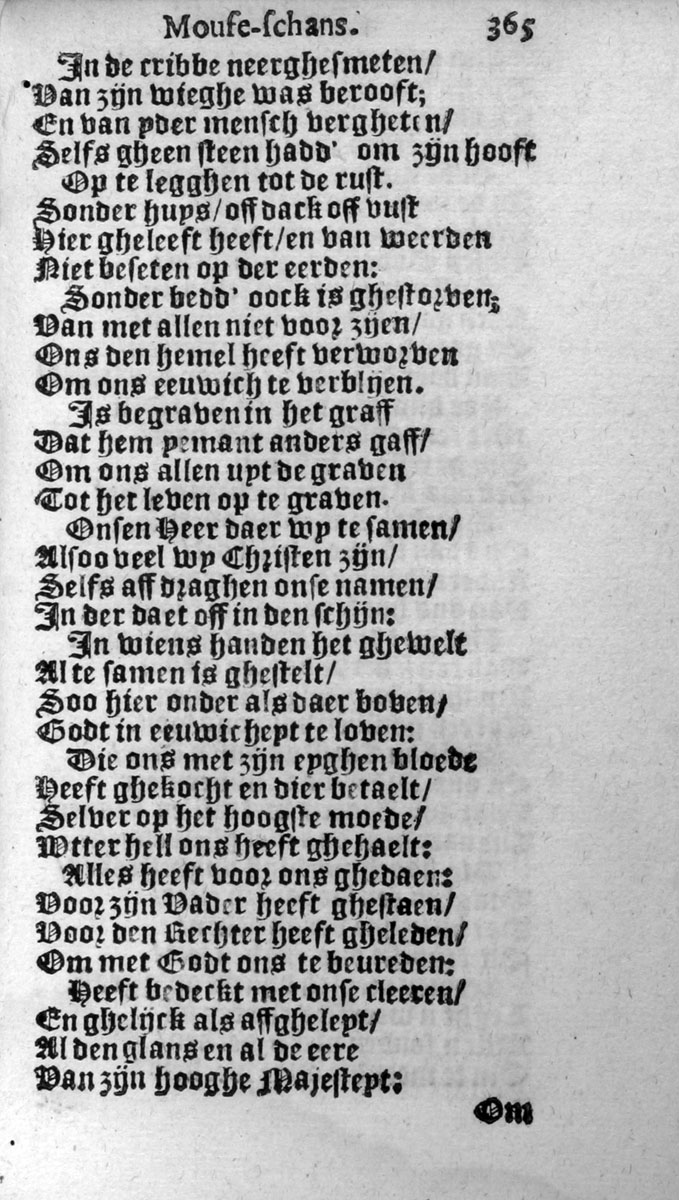 Mouse-schans. 365
In de cribbe neerghesmeten/
Van zijn wieghe was berooft;
En van yder mensch vergheten/
Selfs gheen steen hadd' om zijn hooft
Op te legghen tot de rust.
Sonder huys/off dack off vust
Hier gheleeft heeft/en van weerden
Niet beseten op der eerden:
Sonder bedd' oock is ghestorven;
Van met allen niet voor zijen/
Ons den hemel heeft verworven
Om ons eeuwich te verblijen.
Is begraven in het graff
Dat hem yemant anders gaff/
Om ons allen uyt de graven
Tot het leven op te graven.
Onsen Heer daer wy te samen/
Alsoo veel wy Christen zijn/
Selfs aff draghen onse namen/
In der daet off in den schijn:
In wiens handen het ghewelt
Al te samen is ghestelt/
Soo hier onder als daer boven/
Godt in eeuwicheyt te loven:
Die ons met zijn eyghen bloede
Heeft ghekocht en dier betaelt/
Selver op het hoogste moede/
Wtter hell ons heeft ghehaelt:
Alles heeft voor ons ghedaen:
Voor zijn Vader heeft ghestaen/
Voor den Rechter heeft gheleden/
Om met Godt ons te beureden:
Heeft bedeckt met onse cleeren/
En ghelijck als affgheleyt/
Al den glans en al de eere
Van zijn hooghe Majesteyt:
Om